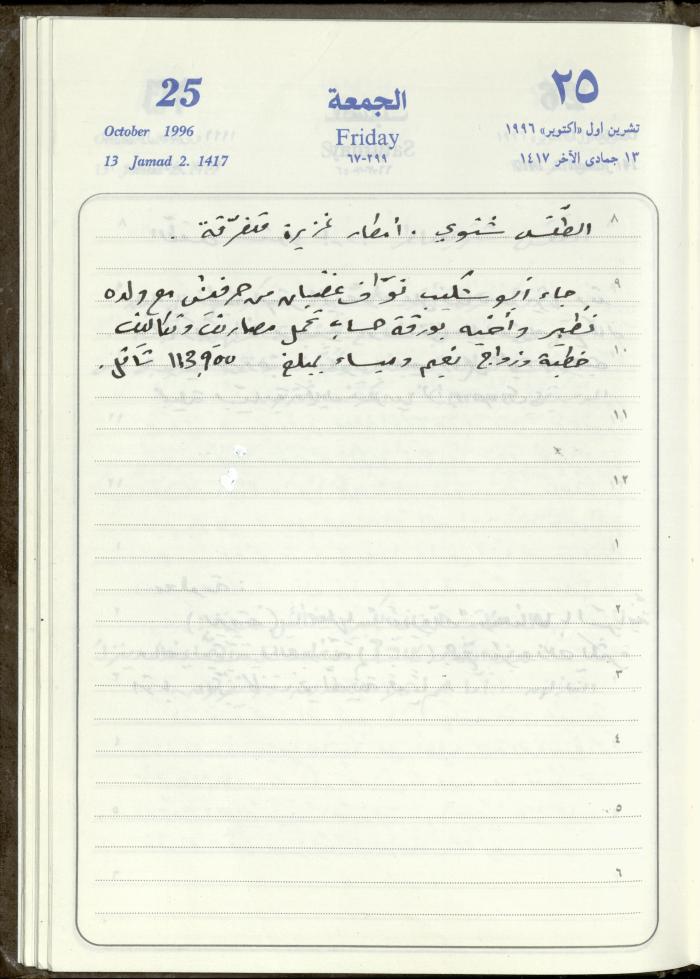 25
October 1996
13 Jamad 2. 1417
الجمعة
Friday
٦٧-٢٩٩
٢٥
تشرين اول «اكتوبر» ١٩٩٦
١٣ جمادى الآخر ١٤١٧
٨
الطقس شتوي . أمطار غزيرة متفرّقة .
٩
جاء أبو شكيب نوّاف غضبان من حرفيش مع ولده
نظير وأخيه بورقة حساب تحمل مصاريف وتكاليف
١٠
خطبة وزواج نعيم وميساء بمبلغ 113,900 شاقل .
١١
١٢
١
٢
٣
٤
٥
٦